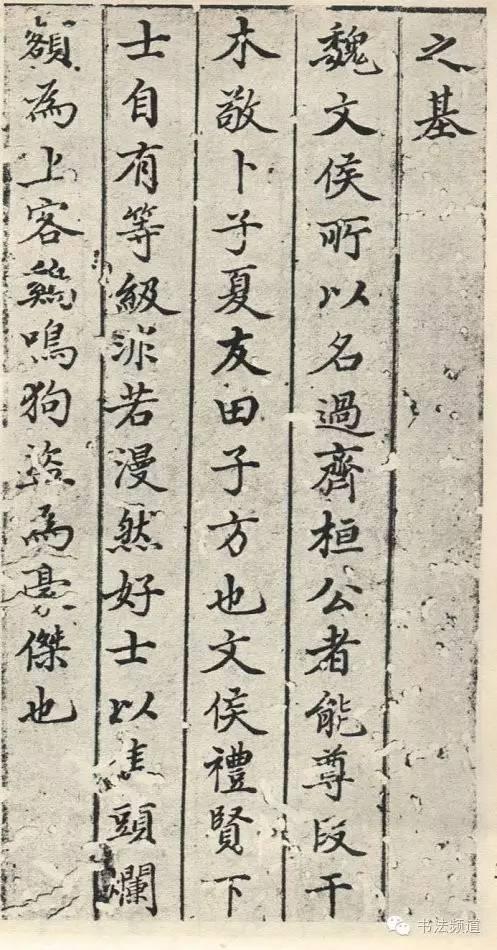 之基
魏文侯所以名過齊桓公者能尊段干
木敬卜子夏友田子方也文侯禮賢下
士自有等級非若漫然好士以焦頭爛
額為上客鷄鳴狗盜為豪傑也
书法频道